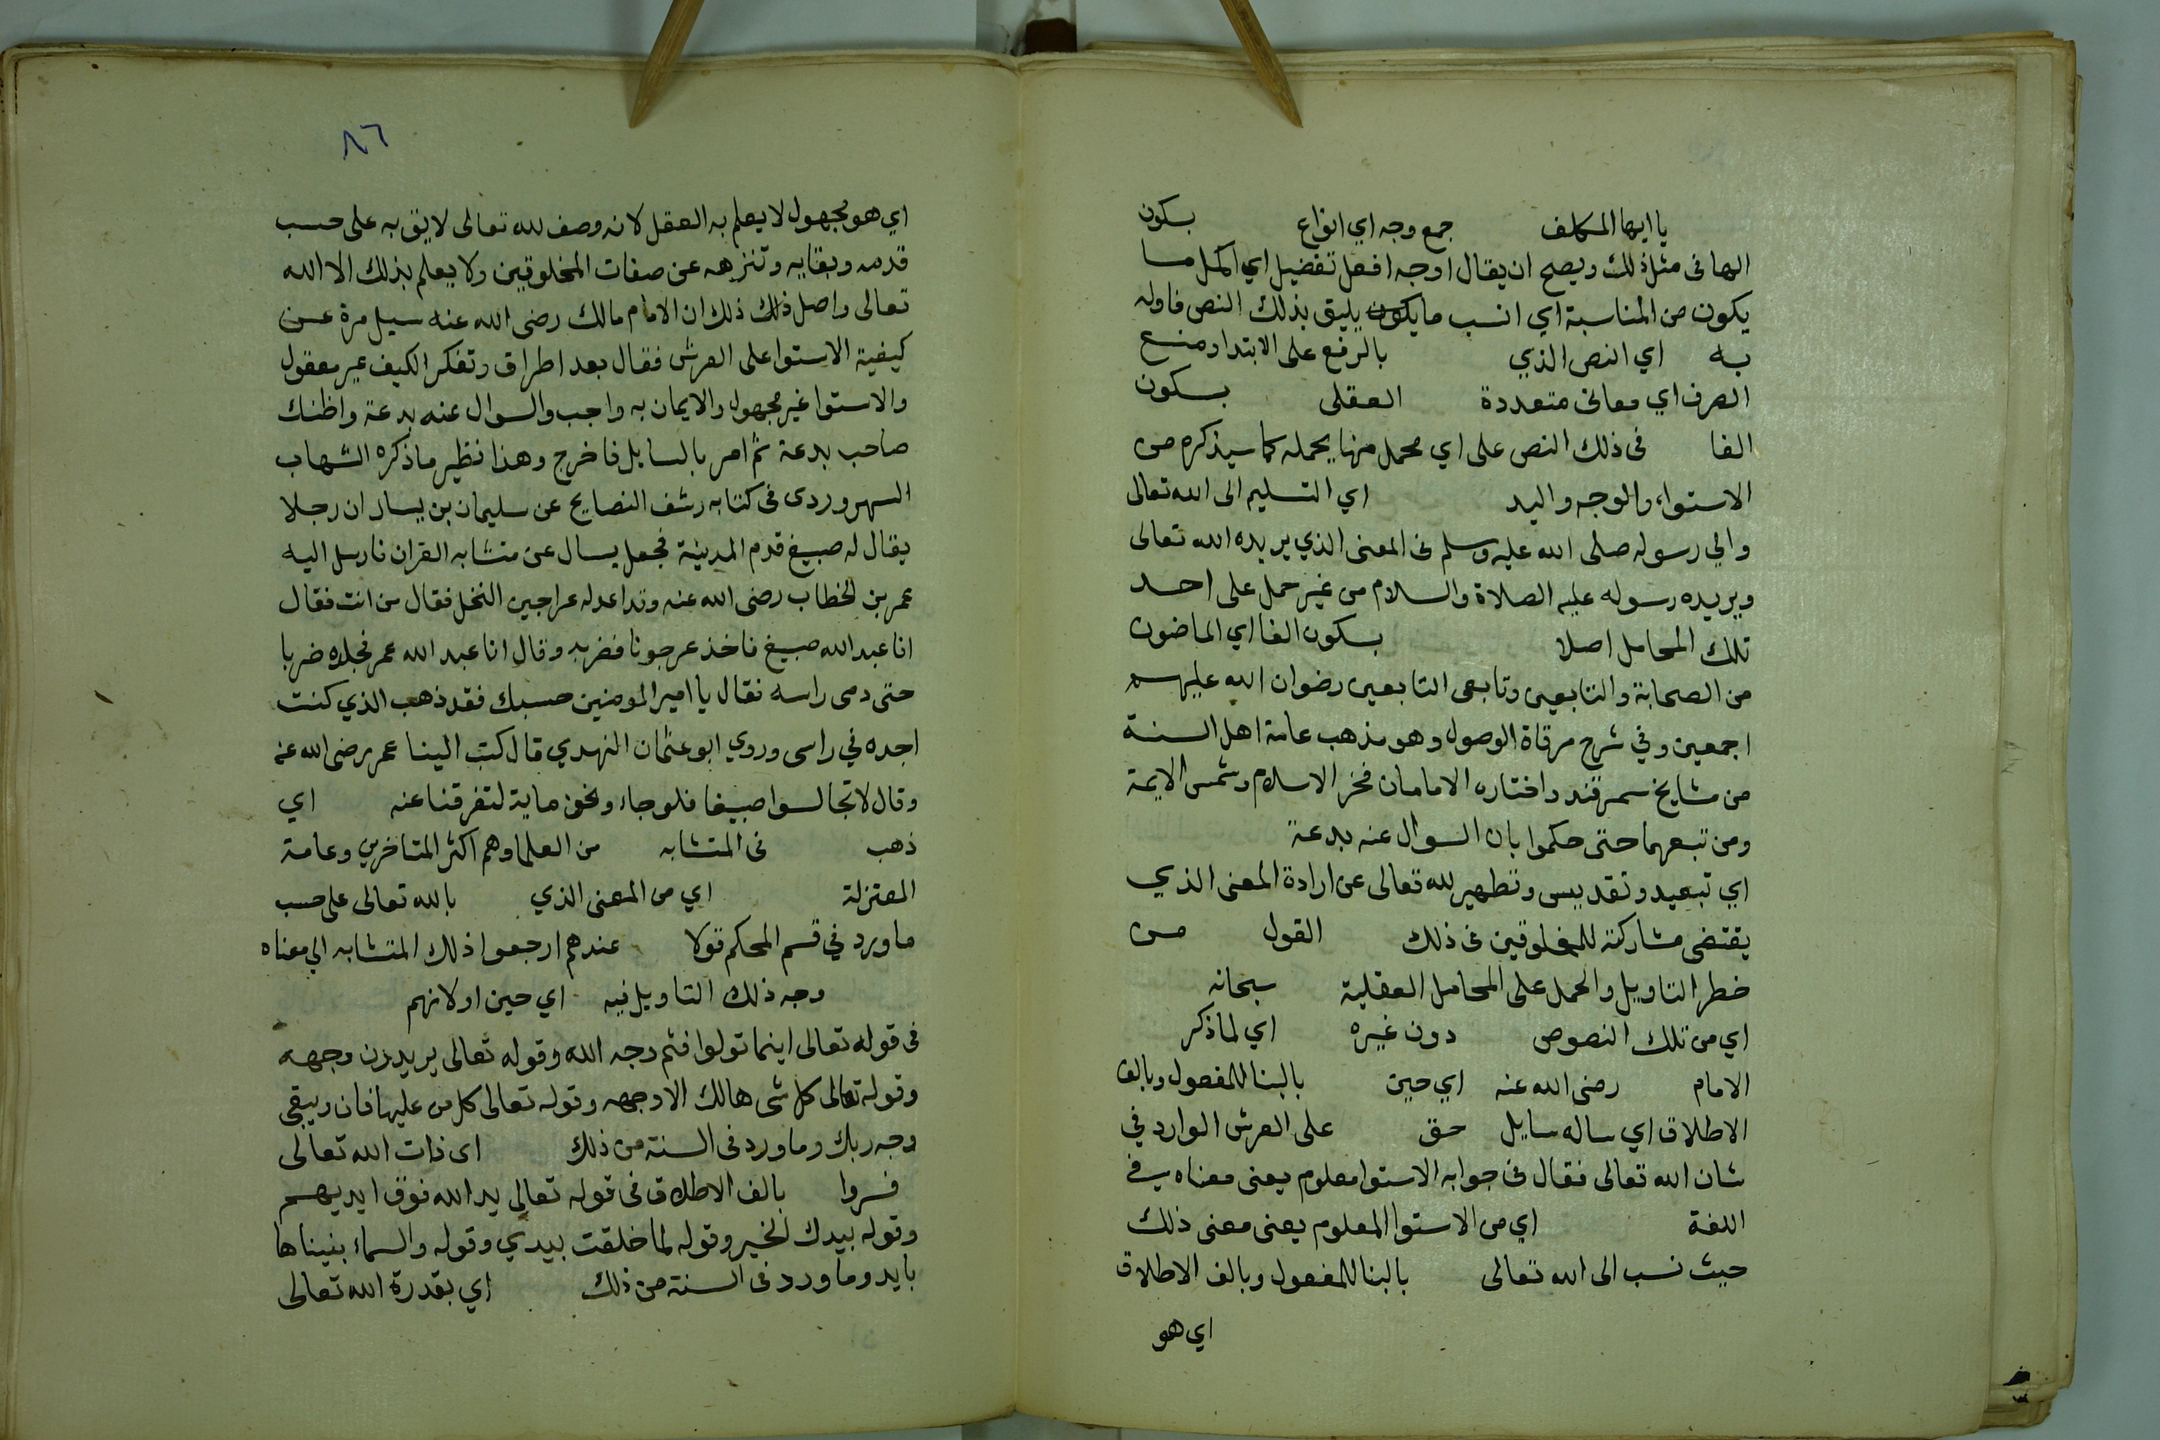 يا ايها المكلف جمع وجه اي انواع بسكون
الهافى مثل ذلك ويصح ان يقال اوجه افعل تفضيل اي اكمل ما
يكون من المناسبة اي انسب مايكون يليق بذلك النص فاوله
به اي النص الذي بالرفع على الابتدا ومنع
الصرف اي معانى متعددة العقلى بسكون
الفا فى ذلك النص على اي محمل منها يحمله كما سيذكره من
الاستواء والوجه واليد اي التسليم الى الله تعالى
والي رسوله صلى الله عليه وسلم فى المعنى الذي يريده الله تعالى
ويريده رسوله عليه الصلاة والسلام من غير حمل على احد
تلك المحامل اصلا بسكون الفا اي الماضون
من الصحابة والتابعين وتابعى التابعين رضوان الله عليهم
اجمعين وفي شرح مرقاة الوصول وهو مذهب عامة اهل السنة
من مشايخ سمرقند واختاره الامامان فخر الاسلام وشمس الايمة
ومن تبعهما حتى حكموا بان السوال عنه بدعة
اي تبعيد وتقديس وتطهير لله تعالى عن ارادة المعنى الذي
يقتضى مشاركته للمخلوقين فى ذلك القول من
خطر التاويل والحمل على المحامل العقلية سبحانه
اي من تلك النصوص دون غيره اي لما ذكر
الامام رضى الله عنه اي حين بالبنا للمفعول وبالف
الاطلاق اي ساله سايل حق على العرش الوارد في
شان الله تعالى فقال فى جوابه الاستوا معلوم يعنى معناه في
اللغة اي من الاستوا المعلوم يعنى معنى ذلك
حيث نسب الى الله تعالى بالبنا للمفعول وبالف الاطلاق
اي هو
٨٦
اي هو مجهول لا يعلم به العقل لانه وصف لله تعالى لايق به على حسب
قدمه وبقايه وتنزهه عن صفات المخلوقين ولا يعلم بذلك الا الله
تعالى واصل ذلك ذلك ان الامام مالك رضى الله عنه سيل مرة عن
كيفية الاستوا على العرش فقال بعد اطراق وتفكر الكيف غير معقول
والاستوا غير مجهول والايمان به واجب والسوال عنه بدعة واظنك
صاحب بدعة ثم امر بالسايل فاخرج وهذا نظير ما ذكره الشهاب
السهروردى فى كتابه رشف النصايح عن سليمان بن يسار ان رجلا
يقال له صبيغ قدم المدينة فجعل يسال عن متشابه القران فارسل اليه
عمر بن الخطاب رضى الله عنه وقد اعد له عراجين النخل فقال من انت فقال
انا عبد الله صبيغ فاخذ عرجونا فضربه وقال انا عبد الله عمر فجلده ضربا
حتى دمى راسه فقال يا امير المومنين حسبك فقد ذهب الذي كنت
اجده في راسى وروي ابو عثمان النهدي قال كتب الينا عمر رضى الله عنه
وقال لا تجالسوا صبيغا فلو جاء ونحن ماية لتفرقنا عنه اي
ذهب فى المتشابه من العلما وهم اكثر المتاخرين وعامة
المعتزلة اي من المعنى الذي بالله تعالى على حسب
ما ورد في قسم المحكم قولا عندهم ارجعوا ذلك المتشابه الي معناه
وجه ذلك التاويل فيه اي حين اولا نهم
فى قوله تعالى اينما تولوا فثم وجه الله وقوله تعالى يريدون وجهه
وقوله تعالى كل شى هالك الا وجهه وقوله تعالى كل من عليها فان ويبقى
وجه ربك وما ورد فى السنة من ذلك اى ذات الله تعالى
فسروا بالف الاطلاق فى قوله تعالى يد الله فوق ايديهم
وقوله بيدك الخير وقوله لما خلقت بيدي وقوله والسماء بنيناها
بايد وما ورد فى السنة من ذلك اي بقدرة الله تعالى